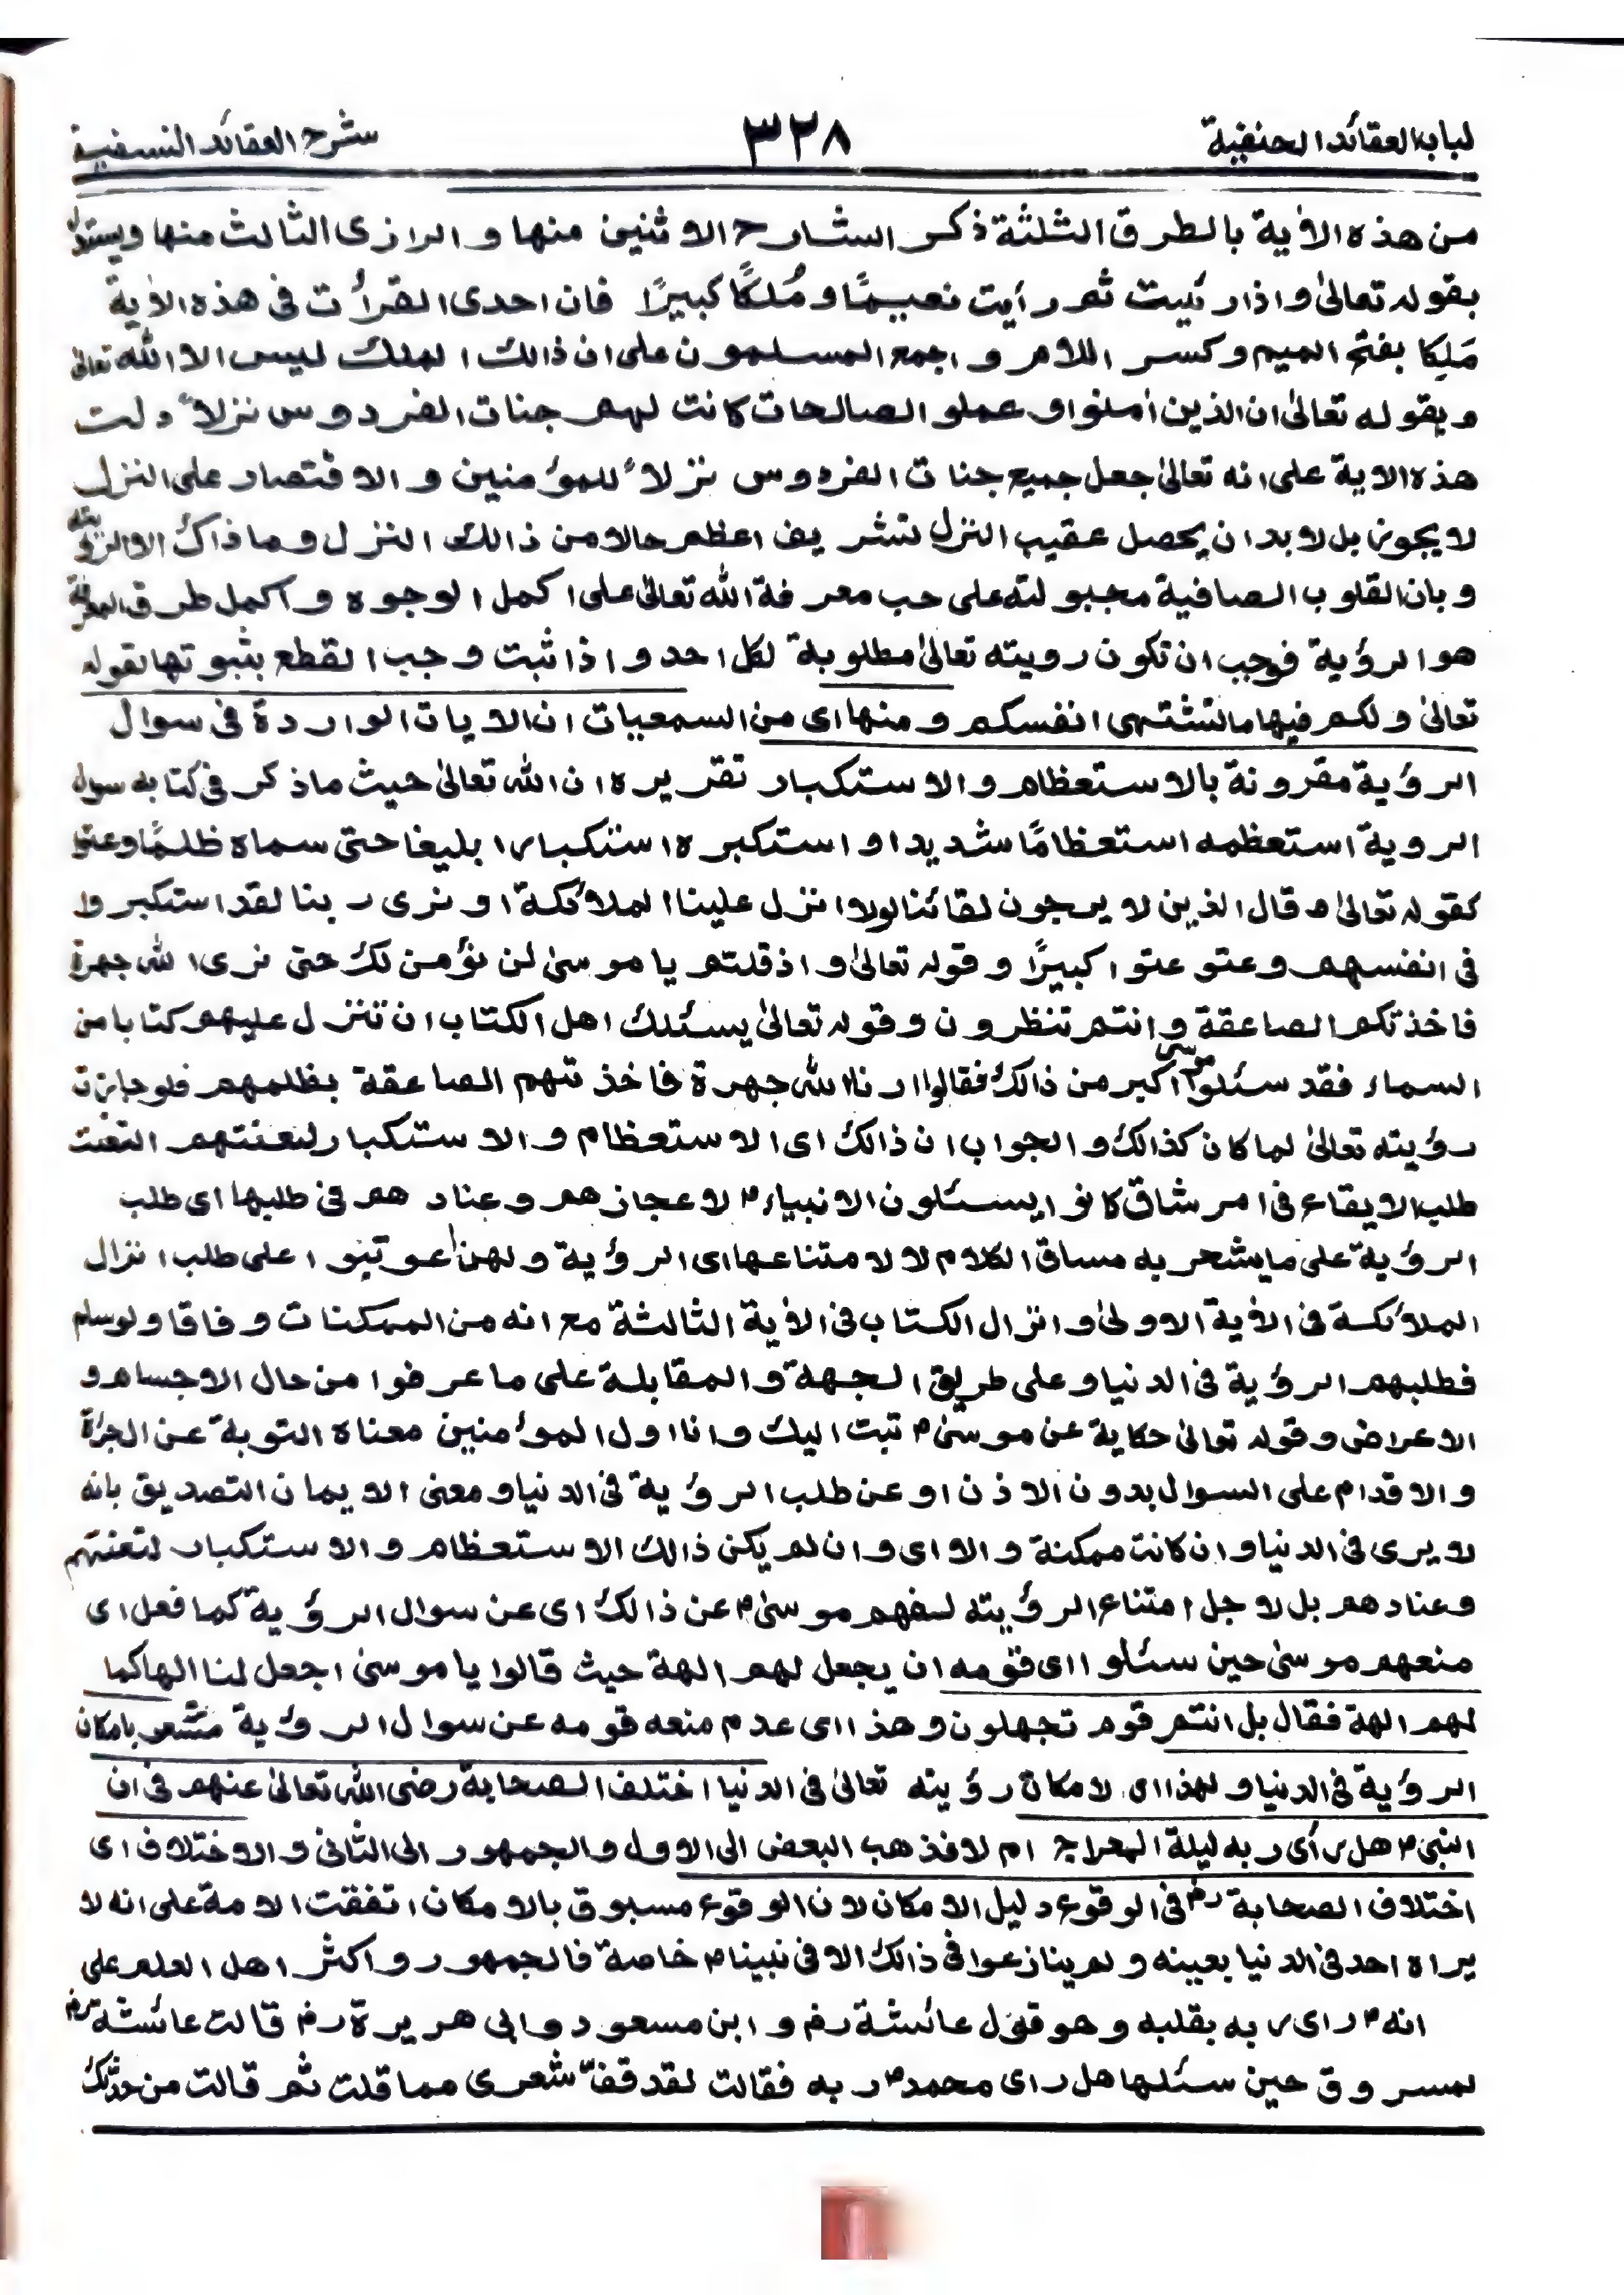 لباب العقائد الحنفية ٣٢٨ شرح العقائد النسفية
من هذه الاٰية بالطرق الثلثة ذكر الشارح الاثنين منها و الرازى الثالث منها ويستدل
بقوله تعالىٰ واذا رئيت ثم رأيت نعيمًا و مُلكًا كبيرًا فان احدى القرأت فى هذه الاٰية
مَلِكا بفتح الميم و كسر اللام و اجمع المسلمون على ان ذالك الملك ليس الا الله تعالىٰ
و بقوله تعالىٰ ان الذين اٰمنوا و عملو الصالحات كانت لهم جنات الفردوس نزلاً دلت
هذه الاية على انه تعالىٰ جعل جميع جنات الفردوس نزلاً للمؤمنين و الاقتصار على النزل
لا يجوز بل لا بد ان يحصل عقيب النزل تشريف اعظم حالا من ذالك النزل وما ذاك الا الرؤية
و بان القلوب الصافية مجبولته على حب معرفة الله تعالىٰ على اكمل الوجوه و اكمل طرق المعرفة
هو الرؤية فوجب ان تكون رويته تعالىٰ مطلوبة لكل احد و اذا ثبت وجب القطع بثبوتها لقوله
تعالىٰ ولكم فيها ما تشتهى انفسكم و منها اى من السمعيات ان الايات الواردة فى سوال
الرؤية مقرونة بالاستعظام و الاستكبار تقريره ان الله تعالىٰ حيث ما ذكر فى كتابه سوال
الروية استعظمه استعظامًا شديدا و استكبره استكبارا بليغا حتى سماه ظلمًا وعتوا
كقوله تعالىٰ و قال الذين لا يرجون لقائنا لولا انزل علينا الملائكة او نرى ربنا لقد استكبروا
فى انفسهم و عتو عتوا كبيرًا و قوله تعالىٰ و اذ قلتم يا موسىٰ لن نؤمن لك حتى نرى الله جهرة
فاخذتكم الصاعقة و انتم تنظرون و قوله تعالىٰ يسئلك اهل الكتاب ان تنزل عليهم كتابا من
السماء فقد سئلوا موسى اكبر من ذالك فقالوا ارنا الله جهرة فاخذتهم الصاعقة بظلمهم فلو جازت
رؤيته تعالىٰ لما كان كذالك و الجواب ان ذالك اى الاستعظام و الاستكبار لتعنتهم التعنت
طلب الايقاع فى امر شاق كانوا يسئلون الانبياءؑ لاعجازهم و عنادهم فى طلبها اى طلب
الرؤية على ما يشعر به مساق الكلام لا لامتناعها اى الرؤية و لهذا عوتبوا على طلب انزال
الملائكة فى الاٰية الاولىٰ و انزال الكتاب فى الاٰية الثالثة مع انه من الممكنات وفاقا و لو سلم
فطلبهم الرؤية فى الدنيا و على طريق الجهة و المقابلة على ما عرفوا من حال الاجسام و
الاعراض و قوله تعالىٰ حكاية عن موسىٰؑ تبت اليك و انا اول المؤمنين معناه التوبة عن الجرأة
و الاقدام على السوال بدون الاذن او عن طلب الرؤية فى الدنيا و معنى الايمان التصديق بانه
لا يرى فى الدنيا و ان كانت ممكنة و الا اى و ان لم يكن ذالك الاستعظام و الاستكبار لتعنتهم
و عنادهم بل لاجل امتناع الرؤيته لمنعهم موسىٰؑ عن ذالك اى عن سوال الرؤية كما فعل اى
منعهم موسىٰ حين سئلوا اى قومه ان يجعل لهم الهة حيث قالوا يا موسىٰ اجعل لنا الها كما
لهم الهة فقال بل انتم قوم تجهلون و هذا اى عدم منعه قومه عن سوال الرؤية مشعر بامكان
الرؤية فى الدنيا و لهذا اى لامكان رؤيته تعالىٰ فى الدنيا اختلف الصحابة رضى الله تعالىٰ عنهم فى ان
النبىؐ هل رأى ربه ليلة المعراج ام لا فذهب البعض الى الاول و الجمهور الى الثانى و الاختلاف اى
اختلاف الصحابةؓ فى الوقوع دليل الامكان لان الوقوع مسبوق بالامكان اتفقت الامة على انه لا
يراه احد فى الدنيا بعينه و لم ينازعوا فى ذالك الا فى نبيناؐ خاصة فالجمهور و اكثر اهل العلم على
انهؐ راى ربه بقلبه و هو قول عائشةؓ و ابن مسعود و ابى هريرةؓ قالت عائشةؓ
لمسروق حين سئلها هل راى محمدؐ ربه فقالت لقد قفّ شعرى مما قلت ثم قالت من حدثك